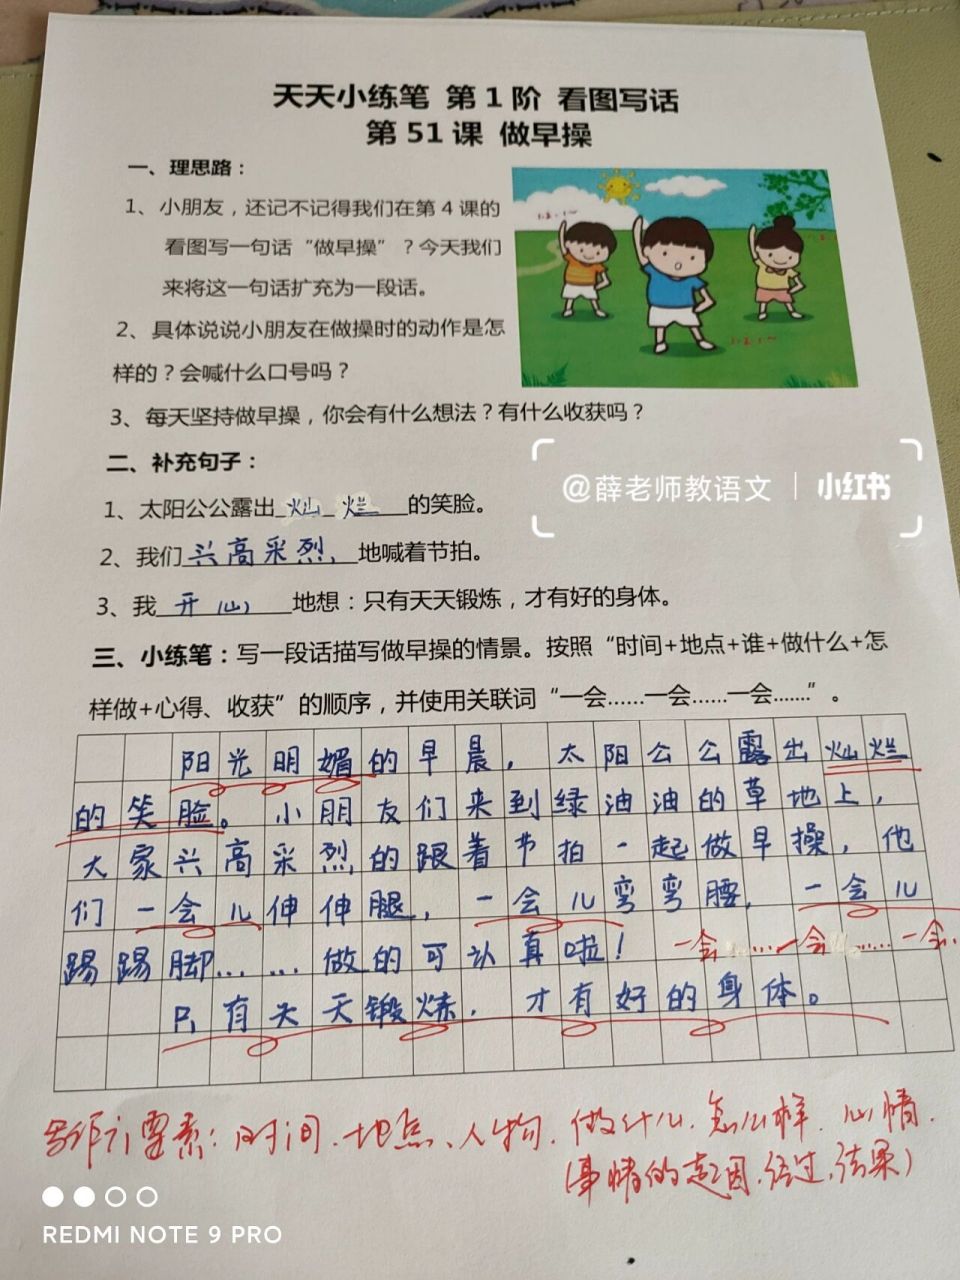 天天小练笔 第1阶 看图写话
第51课 做早操
一、理思路：
1、小朋友，还记不记得我们在第4课的
看图写一句话“做早操”？今天我们
来将这一句话扩充为一段话。
2、具体说说小朋友在做操时的动作是怎
样的？会喊什么口号吗？
3、每天坚持做早操，你会有什么想法？有什么收获吗？
二、补充句子：
@薛老师教语文 | 小红书
1、太阳公公露出灿烂的笑脸。
2、我们兴高采烈，地喊着节拍。
3、我开心地想：只有天天锻炼，才有好的身体。
三、小练笔：写一段话描写做早操的情景。按照“时间+地点+谁+做什么+怎
样做+心得、收获”的顺序，并使用关联词“一会……一会……一会……”。
阳光明媚的早晨，太阳公公露出灿烂
的笑脸。小朋友们来到绿油油的草地上，
大家兴高采烈的跟着节拍一起做早操，他
们一会儿伸伸腿，一会儿弯弯腰，一会儿
踢踢脚……做的可认真啦！
一会……一会……一会…
只有天天锻炼，才有好的身体。
要素：时间、地点、人物、做什么、怎么样、心情。
（事情的起因、经过、结果）
REDMI NOTE 9 PRO